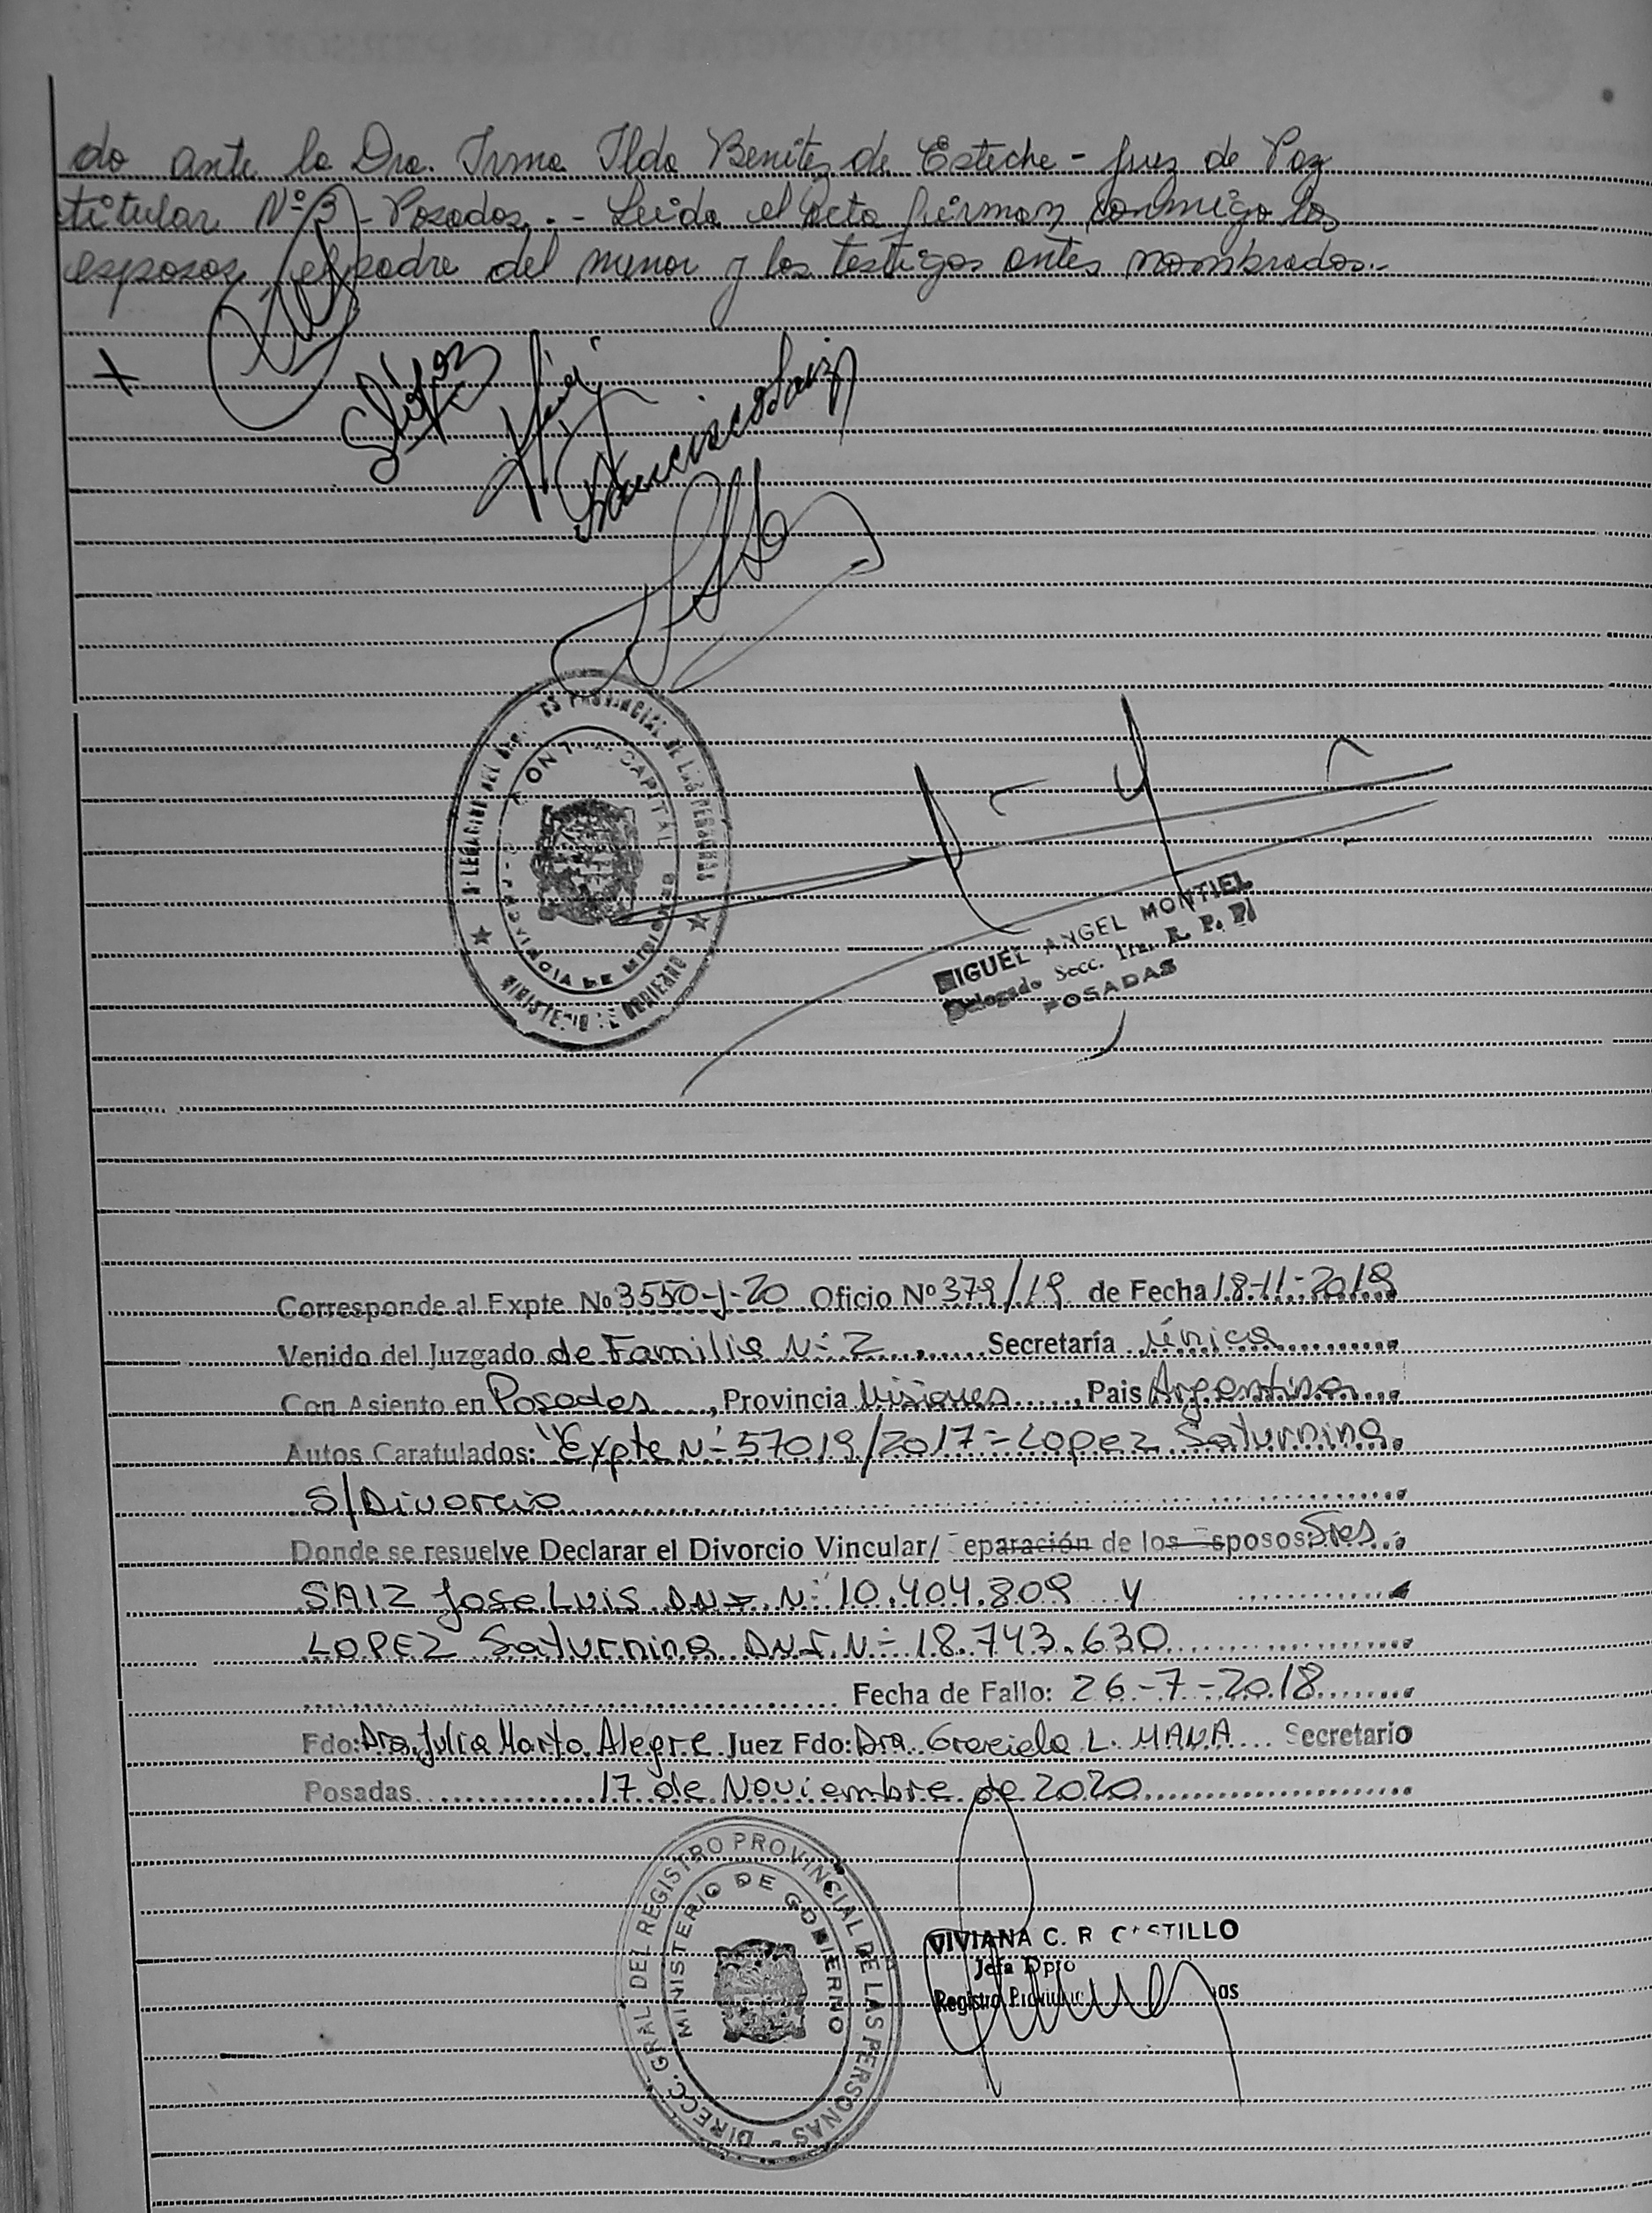 do ante la Dra. Irma Ilda Benitez de Esteche - Juez de Paz
titular Nº 3 - Posadas. - Leída el Acta firman conmigo los
esposos, el padre del menor y los testigos antes nombrados.-
Francisco Saiz
PROVINCIAL DE LAS PERSONAS
CAPITAL
PROVINCIA DE MISIONES
MINISTERIO DE GOBIERNO
MIGUEL ANGEL MONTIEL
Delegado Secc. 1ra. R. P. P.
POSADAS
Corresponde al Expte No 3550-J-20 Oficio Nº 379/19 de Fecha 18-11-2019
Venido del Juzgado de Familia N- 2 Secretaría única
Con Asiento en Posadas, Provincia Misiones, Pais Argentina
Autos Caratulados: "Expte N- 57019/2017 = Lopez Saturnina
S/Divorcio
Donde se resuelve Declarar el Divorcio Vincular/ eparación de los Esposos: Sres.
SAIZ Jose Luis D.N.I. N- 10.404.809 y
LOPEZ Saturnina D.N.I. N- 18.743.630
Fecha de Fallo: 26-7-2018
Fdo: Dra. Julia Marta Alegre Juez Fdo: Dra. Graciela L. MANA Secretario
Posadas 17 de Noviembre de 2020
DIRECC. GRAL DEL REGISTRO PROVINCIAL DE LAS PERSONAS -
MINISTERIO DE GOBIERNO
VIVIANA C. R CASTILLO
Jefa Dpto
Registro Provincial